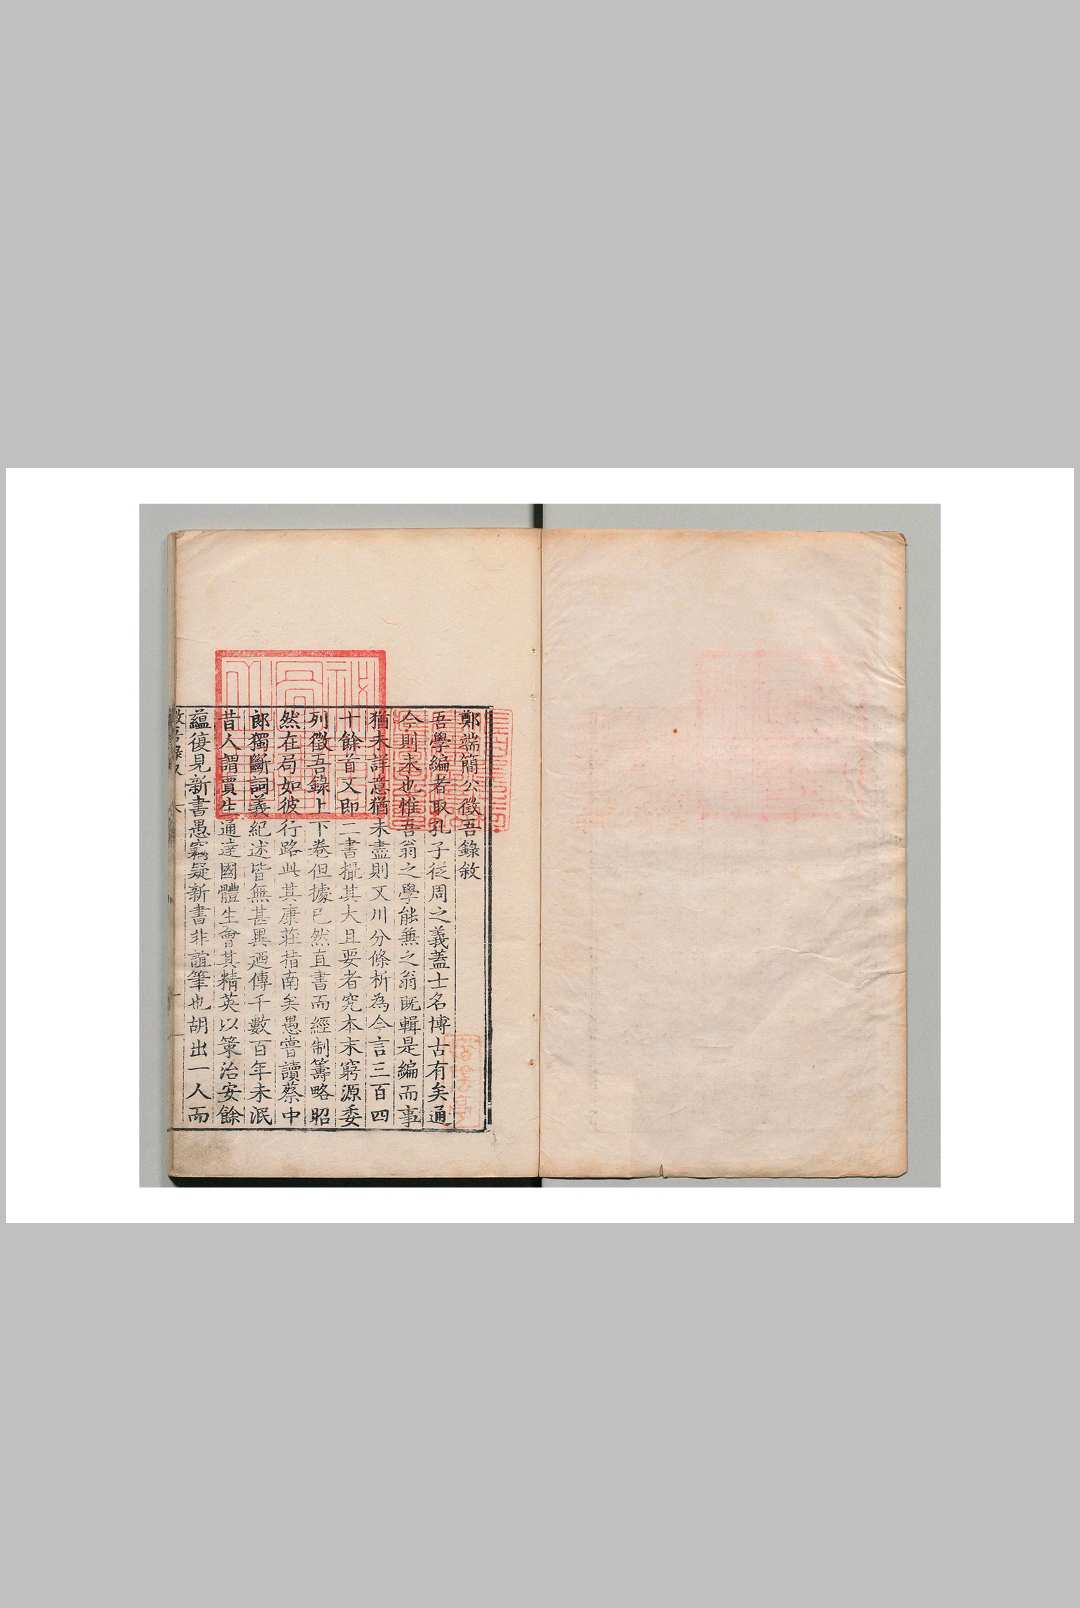 鄭端簡公徵吾錄敘
吾學編者取孔子從周之義蓋士名博古有矣通
今則未也惟吾翁之學能兼之翁既輯是編而事
猶未詳意猶未盡則又川分條析為今言三百四
十餘首又即二書撮其大且要者究本末窮源委
列徵吾錄上下卷但據已然直書而經制籌略昭
然在局如彼行路此其康莊指南矣愚嘗讀蔡中
郎獨斷詞義紀述皆無甚異迺傳千數百年未泯
昔人謂賈生通達國體生會其精英以策治安餘
蘊復見新書愚竊疑新書非誼筆也胡出一人而